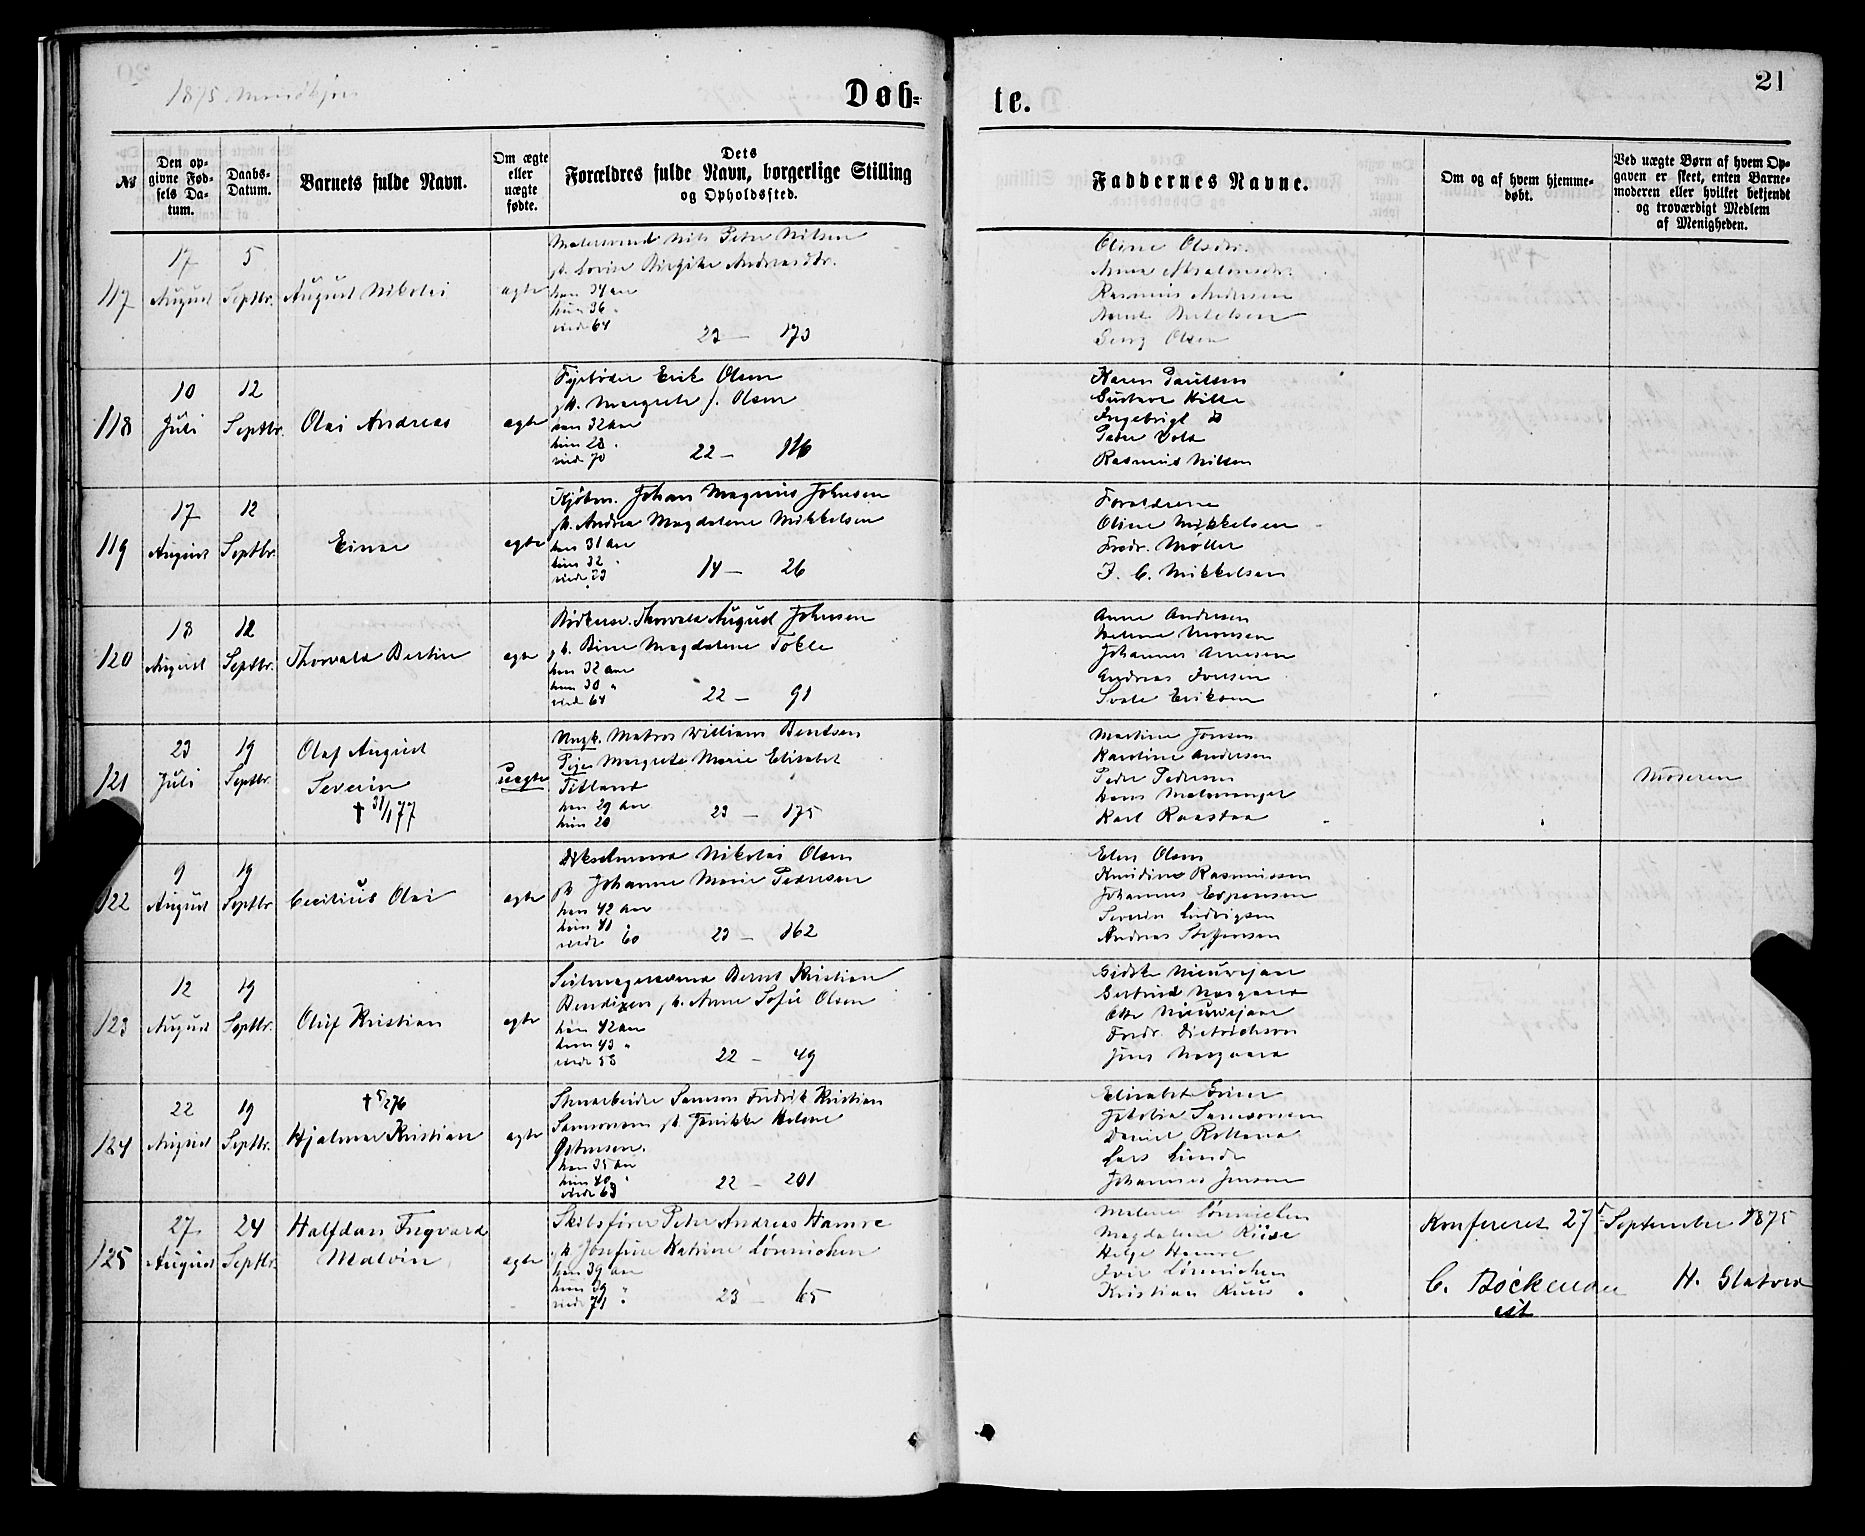 1875 Mandkjøn
Døb=
te.
21
No
Den opgivne Fødsels Datum.
Daabs-Datum.
Barnets fulde Navn.
Om ægte eller uægte fødte.
Dets Forældres fulde Navn, borgerlige Stilling og Opholdssted.
Faddernes Navne.
Om og af hvem hjemmedøbt.
Ved uægte Børn af hvem Opgaven er skeet, enten Barnemoderen eller hvilket bekjendt og troværdigt Medlem af Menigheden.
117
17 August
5 Septbr.
August Nikolai
ægte
Nils Peter Nilsen
Birgitte Andreasdtr.
han 34 aar
hun 36 "
viede 64
23 — 173
Oline Olsdtr.
Anna
Rasmus Andersen
Bernt Bertelsen
Georg Olsen
118
10 Juli
12 Septbr.
Olai Andreas
ægte
Fyrbøder Erik Olsen
Margrete f. Olsen
han 32 aar
hun 28 "
viede 70
22 — 116
Karen Paulsen
Gustava Hille
Ingebrigt
Peder Vold
Rasmus Nilsen
119
17 August
12 Septbr.
Einar
ægte
Kjøbm. Johan Magnus Johnsen
Andrea Magdalene Mikkelsen
han 31 aar
hun 32 "
viede 73
14 — 26
Forældrene
Oline Mikkelsen
Fredr. Møller
J. C. Mikkelsen
120
18 August
12 Septbr.
Thorvald Bertin
ægte
Bødkersv. Thorvald August Johnsen
Magdalene Tokle
han 32 aar
hun 30 "
viede 64
22 — 91
Anne Andersen
Helene Monsen
Johannes Arnesen
Andreas Iversen
Eriksen
121
23 Juli
19 Septbr.
Olaf August
Severin
† 31/1 77
uægte
Ungk. Matros William Bentsen
Pige Margrete Marie Elisabet
Titland
han 29 aar
hun 20
23 — 175
Martine Jonsen
Karoline Andersen
Peder Pedersen
Hans Malmanger
Karl Raastad
Moderen
122
9 August
19 Septbr.
Cecilius Olai
ægte
Nikolai Olsen
Johanne Marie Pedersen
han 42 aar
hun 41 "
viede 60
23 — 162
Elen Olsen
Knudine Rasmussen
Johannes Espensen
Severin Ludvigsen
Andreas Steffensen
123
12 August
19 Septbr.
Oluf Kristian
ægte
Seilmagersvend Bernt Kristian
Bendixen, Anne Sofie Olsen
han 42 aar
hun 43 "
viede 58
22 — 49
Gidske Nieuwejaar
Gertrud Norgaard
Otto Nieuwejaar
Fredr. Dietrichson
Jens Norgaard
124
22 August
19 Septbr.
† 5/2 76
Hjalmar Kristian
ægte
Samson Fredrik Kristian
Samsonsen Henrikke Helene
Østensen.
han 35 aar
hun 40 "
viede 63
22 — 201
Elisabet Grner
Jakobia Samsonsen
Daniel Rolland
Lars Lunde
Johannes Jensen
125
27 August
24 Septbr.
Halfdan Ingvard
Malvin
ægte
Skibsfører Peter Andreas Hamre
Josefine Katrine Lønnichen
han 39 aar
hun 39 "
viede 71 "
23 — 65
Malene Lønnichen
Magdalene Riise
Helge Hamre
Iver Lønnichen
Kristian Ruus
Konfereret 27 September 1875
C. Bøckman
H. Slatved